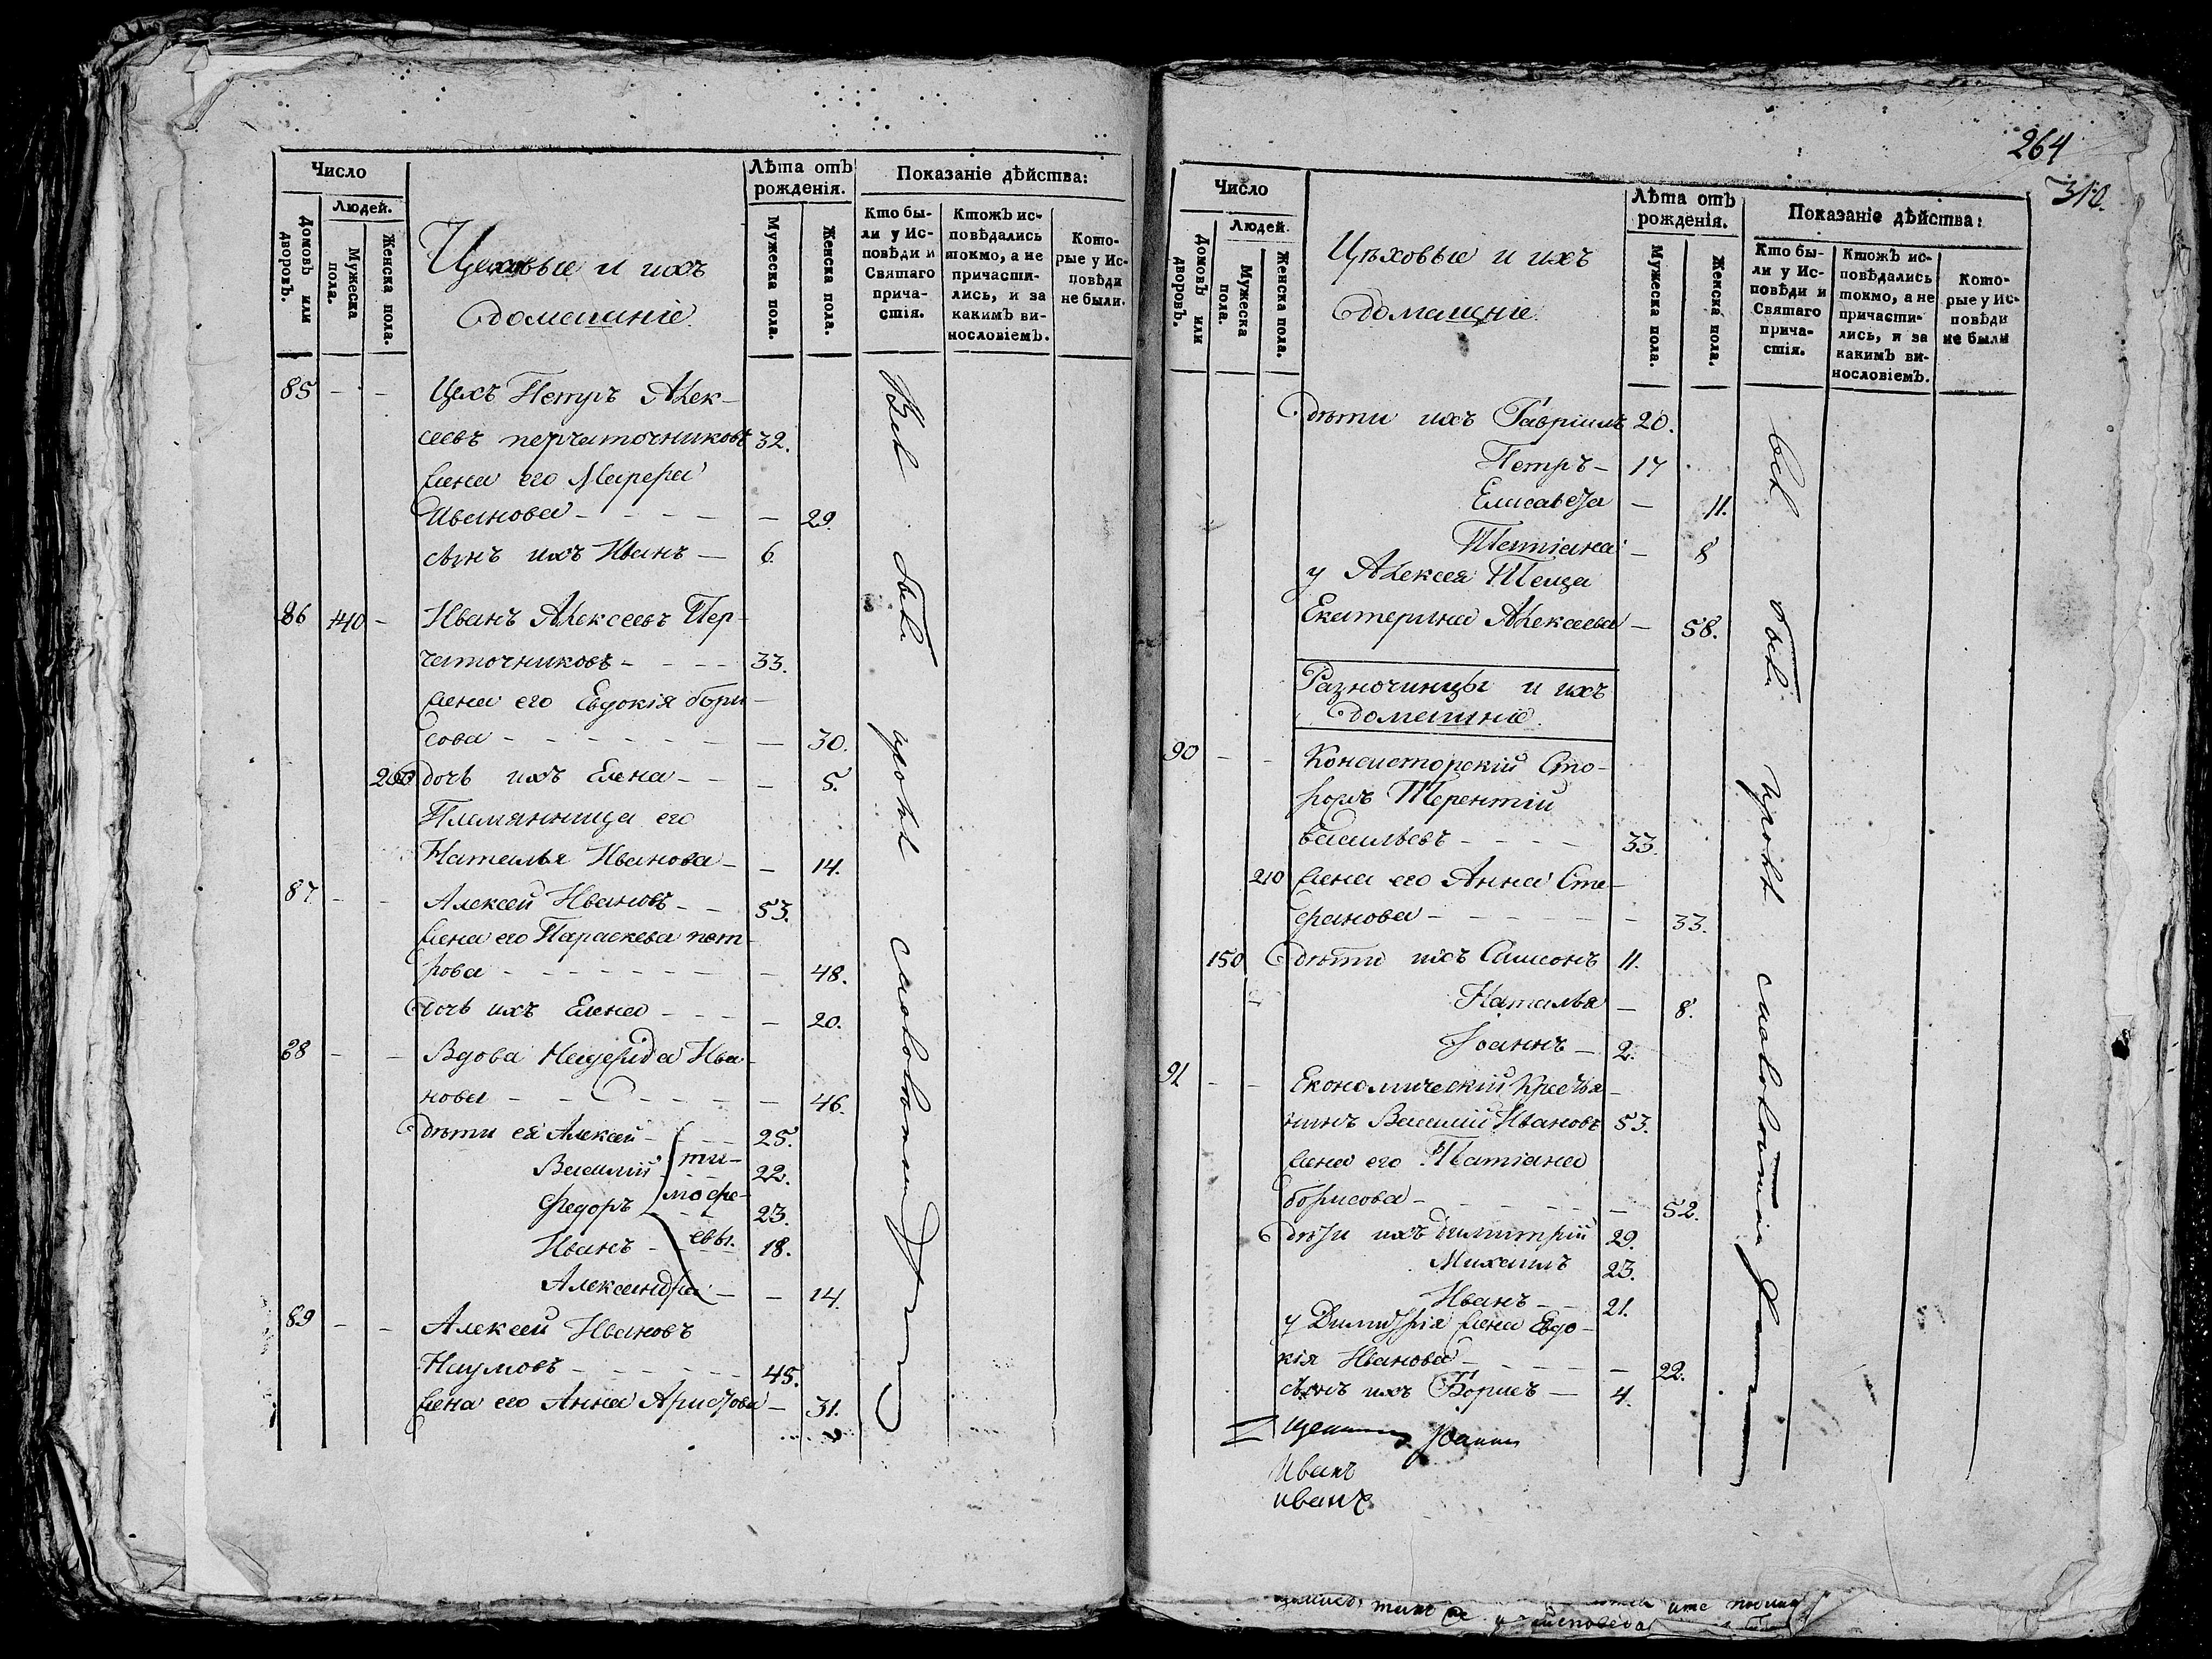 Число
Людей.
Домовъ или дворовъ.
Мужеска пола.
Женска пола.
Цеховые и ихъ
домашніе.
Лѣта отъ рожденія.
Мужеска пола.
Женска пола.
Показаніе дѣйства:
Кто были у Исповѣди и Святаго причастія.
Ктожъ исповѣдались токмо, а не причастились, и за какимъ винословіемъ.
Которые у Исповѣди не были.
85 - - Цехъ Петръ Алек-
сеевъ перчаточниковъ 32.
жена его Марфа
Иванова - - - - - 29.
сынъ ихъ Иванъ - 6.
86 140 - Иванъ Алексеевъ Пер-
чаточниковъ - - - - 33.
жена его Евдокія бори-
сова - - - - - - - 30.
200 дочь ихъ Елена - - - 5.
Племянница его
Наталья Иванова - - 14.
87 - - Алексей Ивановъ - - 53.
жена его Параскева пет-
рова - - - - - - - 48.
дочь ихъ Елена - - - - 20.
88 - - Вдова Надежда Ива-
нова - - - - - - 46.
дѣти ея Алексей - - - 25.
Василий ти- 22.
Федоръ мофе- 23.
Иванъ - евы. 18.
Александра - - 14.
89 - - Алексей Ивановъ
Наумовъ - - - - - 45.
жена его Анна Аристова - 31.
Всѣ были кромѣ
264
310.
Число
Людей.
Домовъ или дворовъ.
Мужеска пола.
Женска пола.
Цѣховые и ихъ
домашніе.
Лѣта отъ рожденія.
Мужеска пола.
Женска пола.
Показаніе дѣйства:
Кто были у Исповѣди и Святаго причастія.
Ктожъ исповѣдались токмо, а не причастились, и за какимъ винословіемъ.
Которые у Исповѣди не были
дѣти ихъ Гавріилъ 20.
Петръ - 17
Елисавета - 11.
Татіана - 8
у Алексея Теща
Екатерина Алексеева - 58.
Разночинцы и ихъ
домашніе.
90 - - Консисторскій Сто-
рожъ Терентій
Васильевъ - - - - 33.
210 жена его Анна Сте-
фанова - - - - - - 33.
150 дѣти ихъ Самсонъ 11.
- Наталья - 8.
Іоаннъ - 2.
91 - - Економическій Крестья-
нинъ Василій Ивановъ 53.
жена его Татіана
борисова - - - - - - 52.
дѣти ихъ Димитрій 29.
Михаилъ 23.
Иванъ - - 21.
у Димитрія жена Евдо-
кія Иванова - - - - - 22.
сынъ ихъ Борисъ - 4.
Иванъ
иванъ